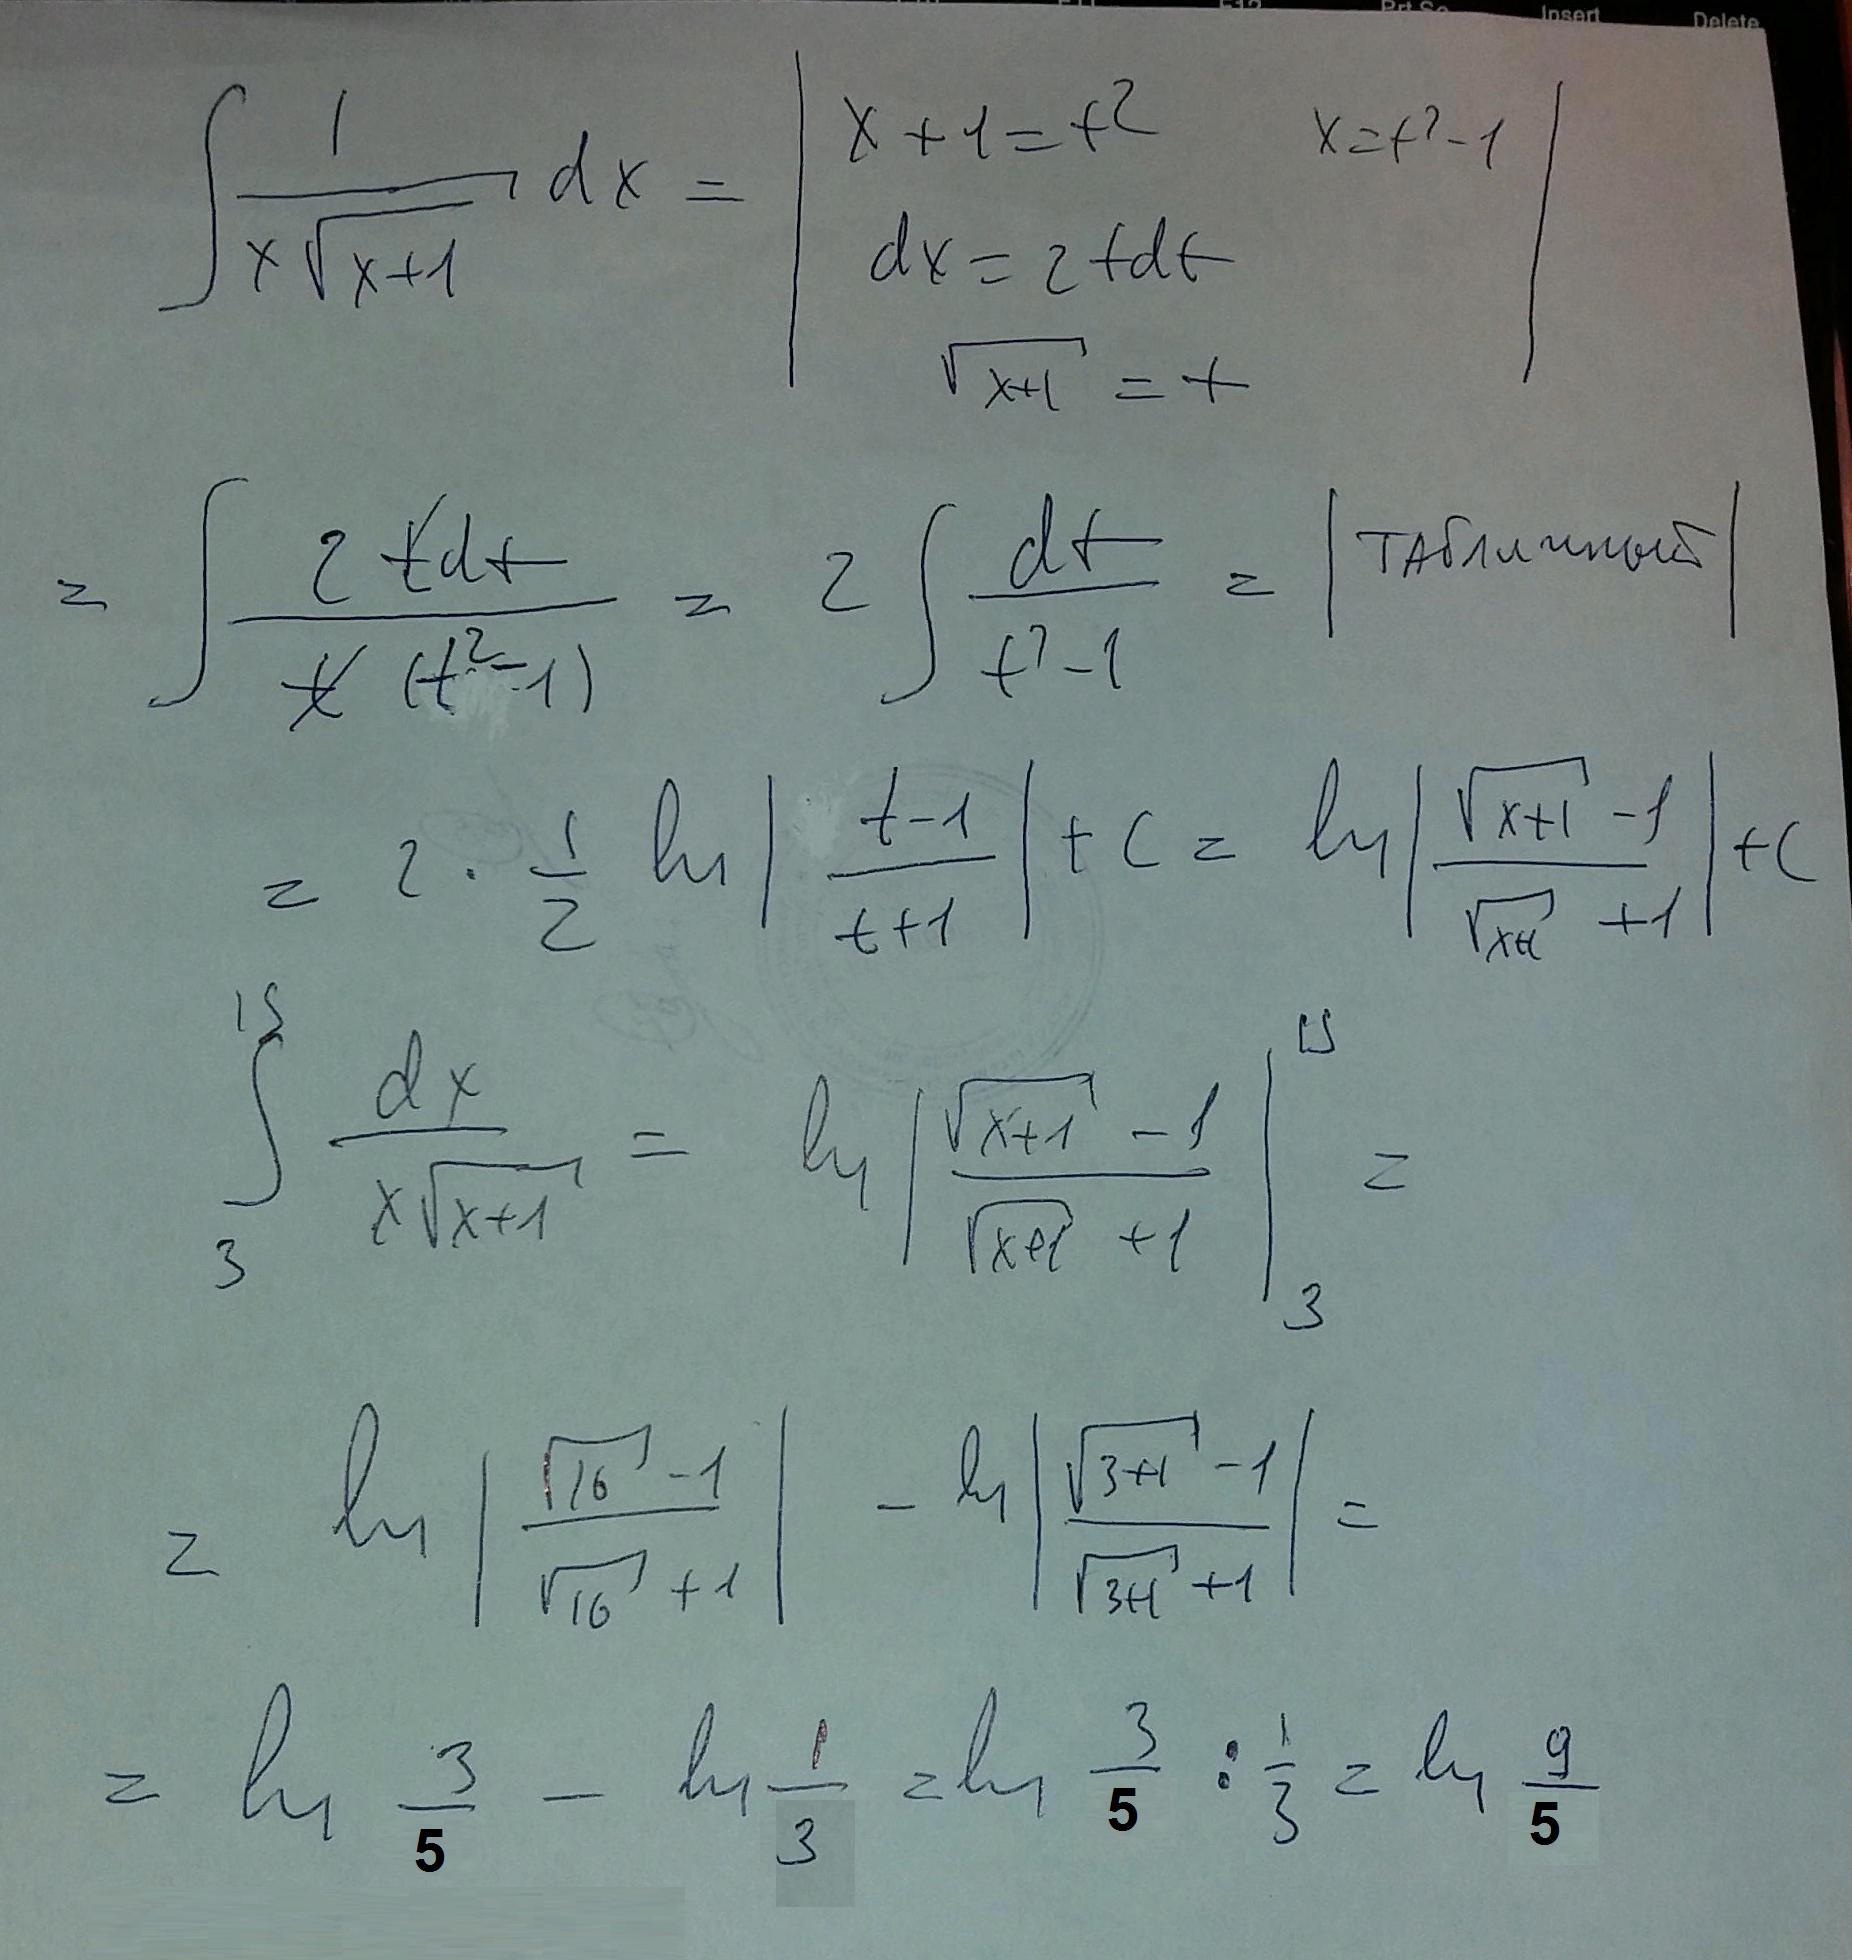 Insert Delete
∫ 1/(x√(x+1)) dx = | x+1=t² x=t²-1 |
dx=2tdt
√(x+1) = t
= ∫ 2tdt/(t(t²-1)) = 2 ∫ dt/(t²-1) = | ТАБЛИЧНЫЙ |
= 2 · 1/2 ln |(t-1)/(t+1)| + C = ln |(√(x+1) -1)/(√(x+1) +1)| + C
∫₃¹⁵ dx/(x√(x+1)) = ln |(√(x+1) -1)/(√(x+1) +1)| |₃¹⁵ =
= ln |(√16 -1)/(√16 +1)| - ln |(√(3+1) -1)/(√(3+1) +1)| =
= ln 3/5 - ln 1/3 = ln 3/5 : 1/3 = ln 9/5